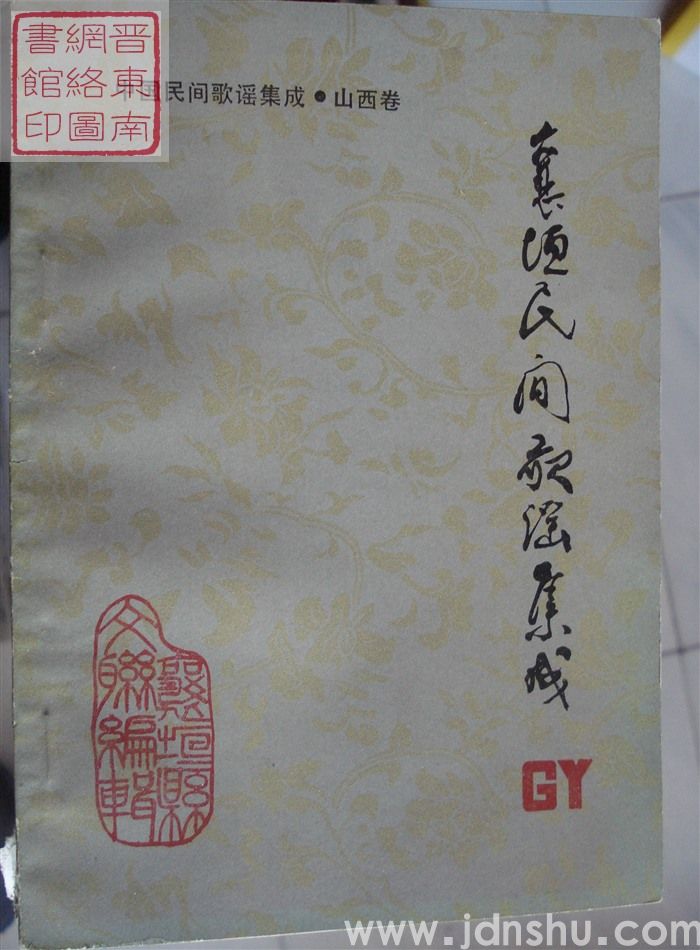 晋東南
網絡圖
書館印
中国民间歌谣集成•山西卷
襄垣民间歌谣集成
GY
襄垣縣
文聯編輯
www.jdnshu.com